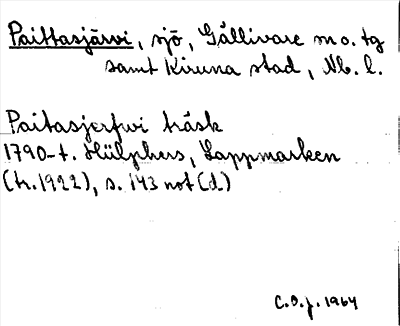 Paittasjärvi, sjö, Gällivare sn o. tg
samt Kiruna stad, Nb. l.
Paitasjerfwi träsk
1790-t. Hülphers, Lappmarken
(tr. 1922), s. 143 not (d)
C.O.J. 1964